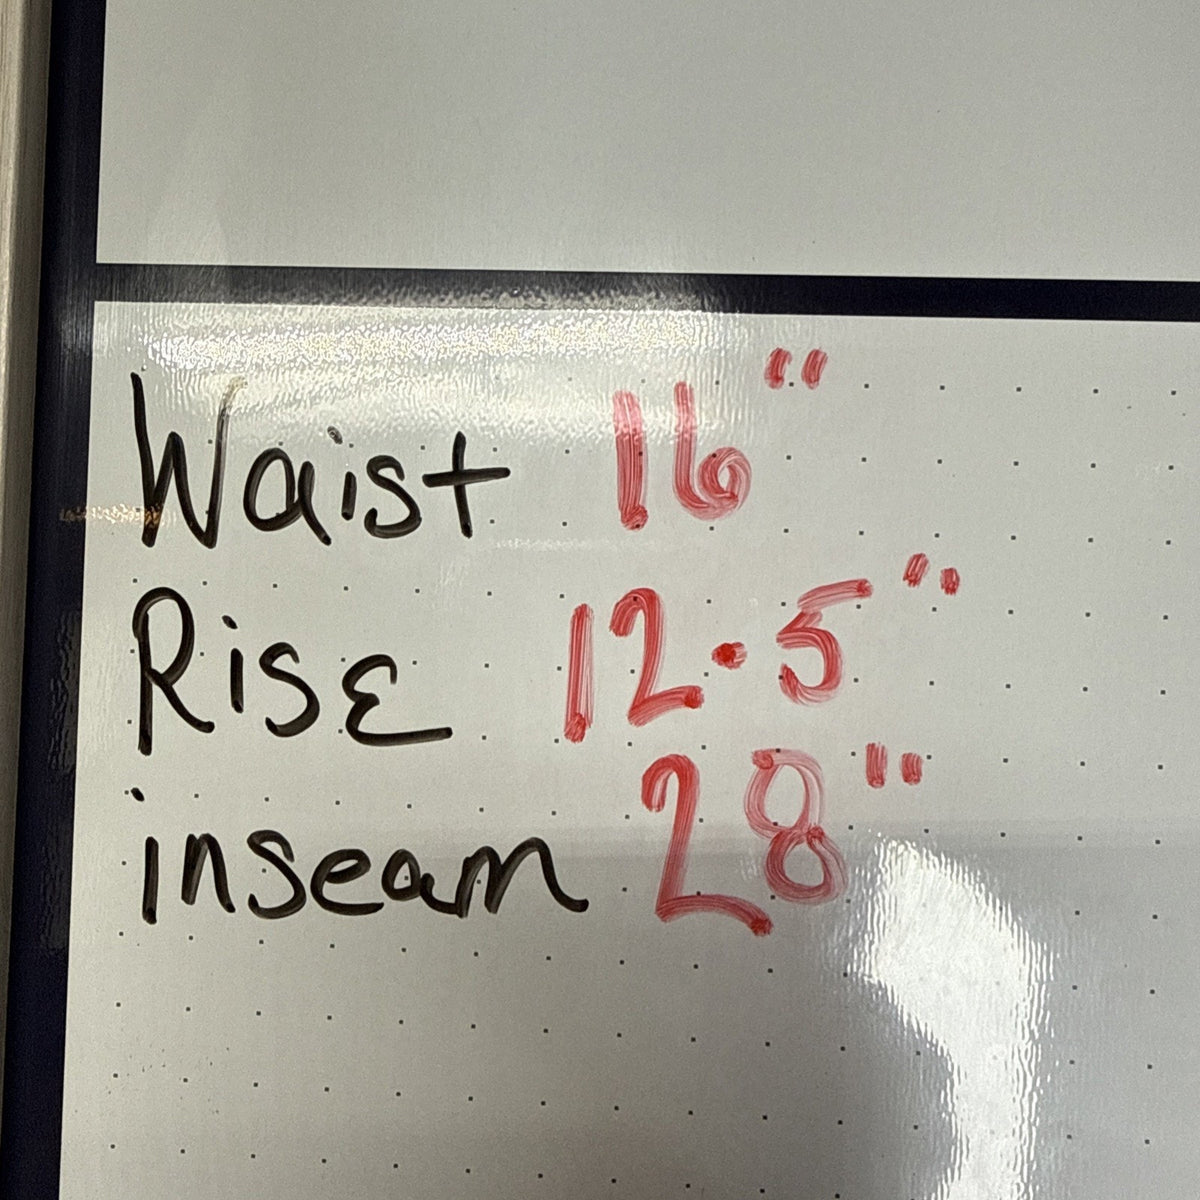 Waist 16"
Rise 12.5"
inseam 28"